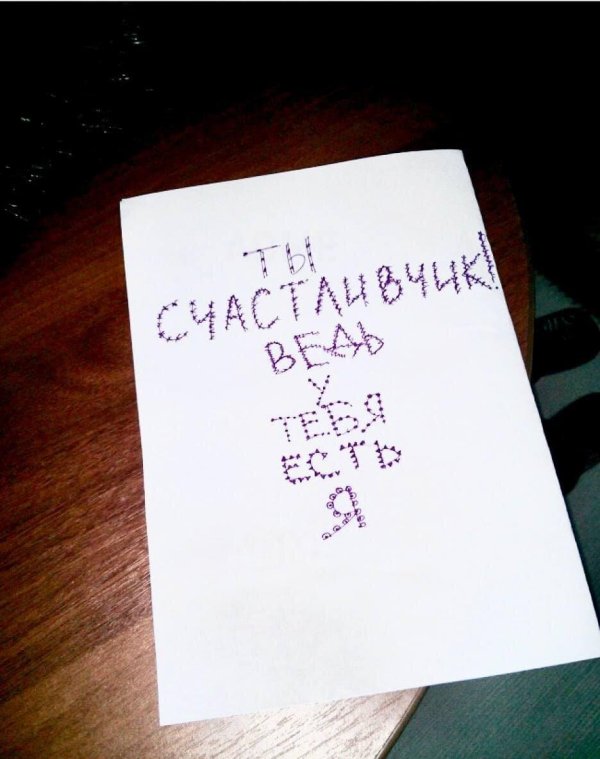 ТЫ
СЧАСТЛИВЧИК!
ВЕДЬ
У
ТЕБЯ
ЕСТЬ
Я